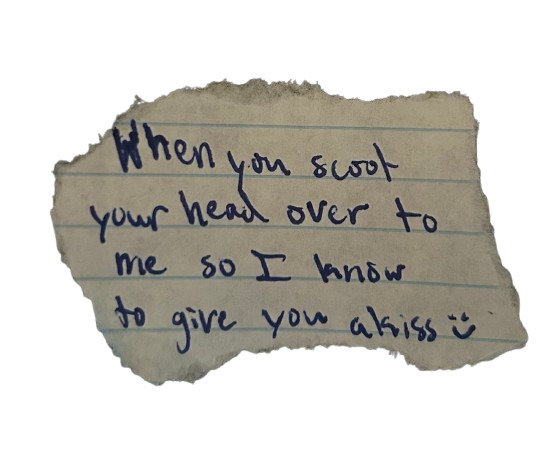 When you scoot
your head over to
me so I know
to give you a kiss :)